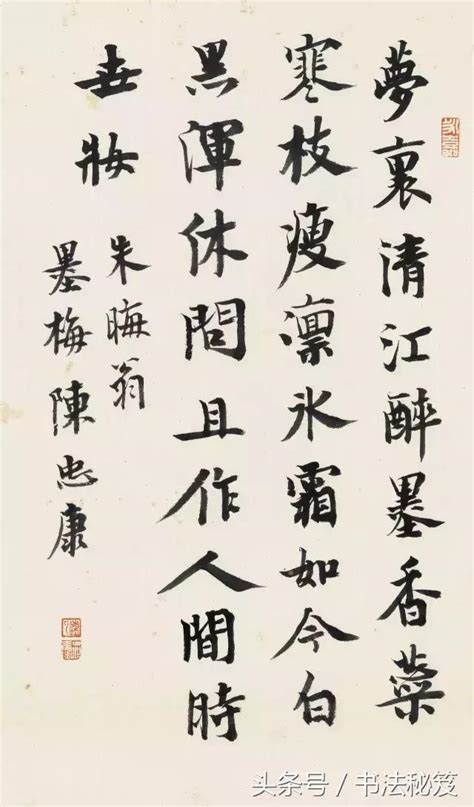 夢裏清江醉墨香蘂
寒枝瘦凛氷霜如今白
黑渾休問且作人間時
世妝
朱晦翁
墨梅陳忠康
头条号 / 书法秘笈